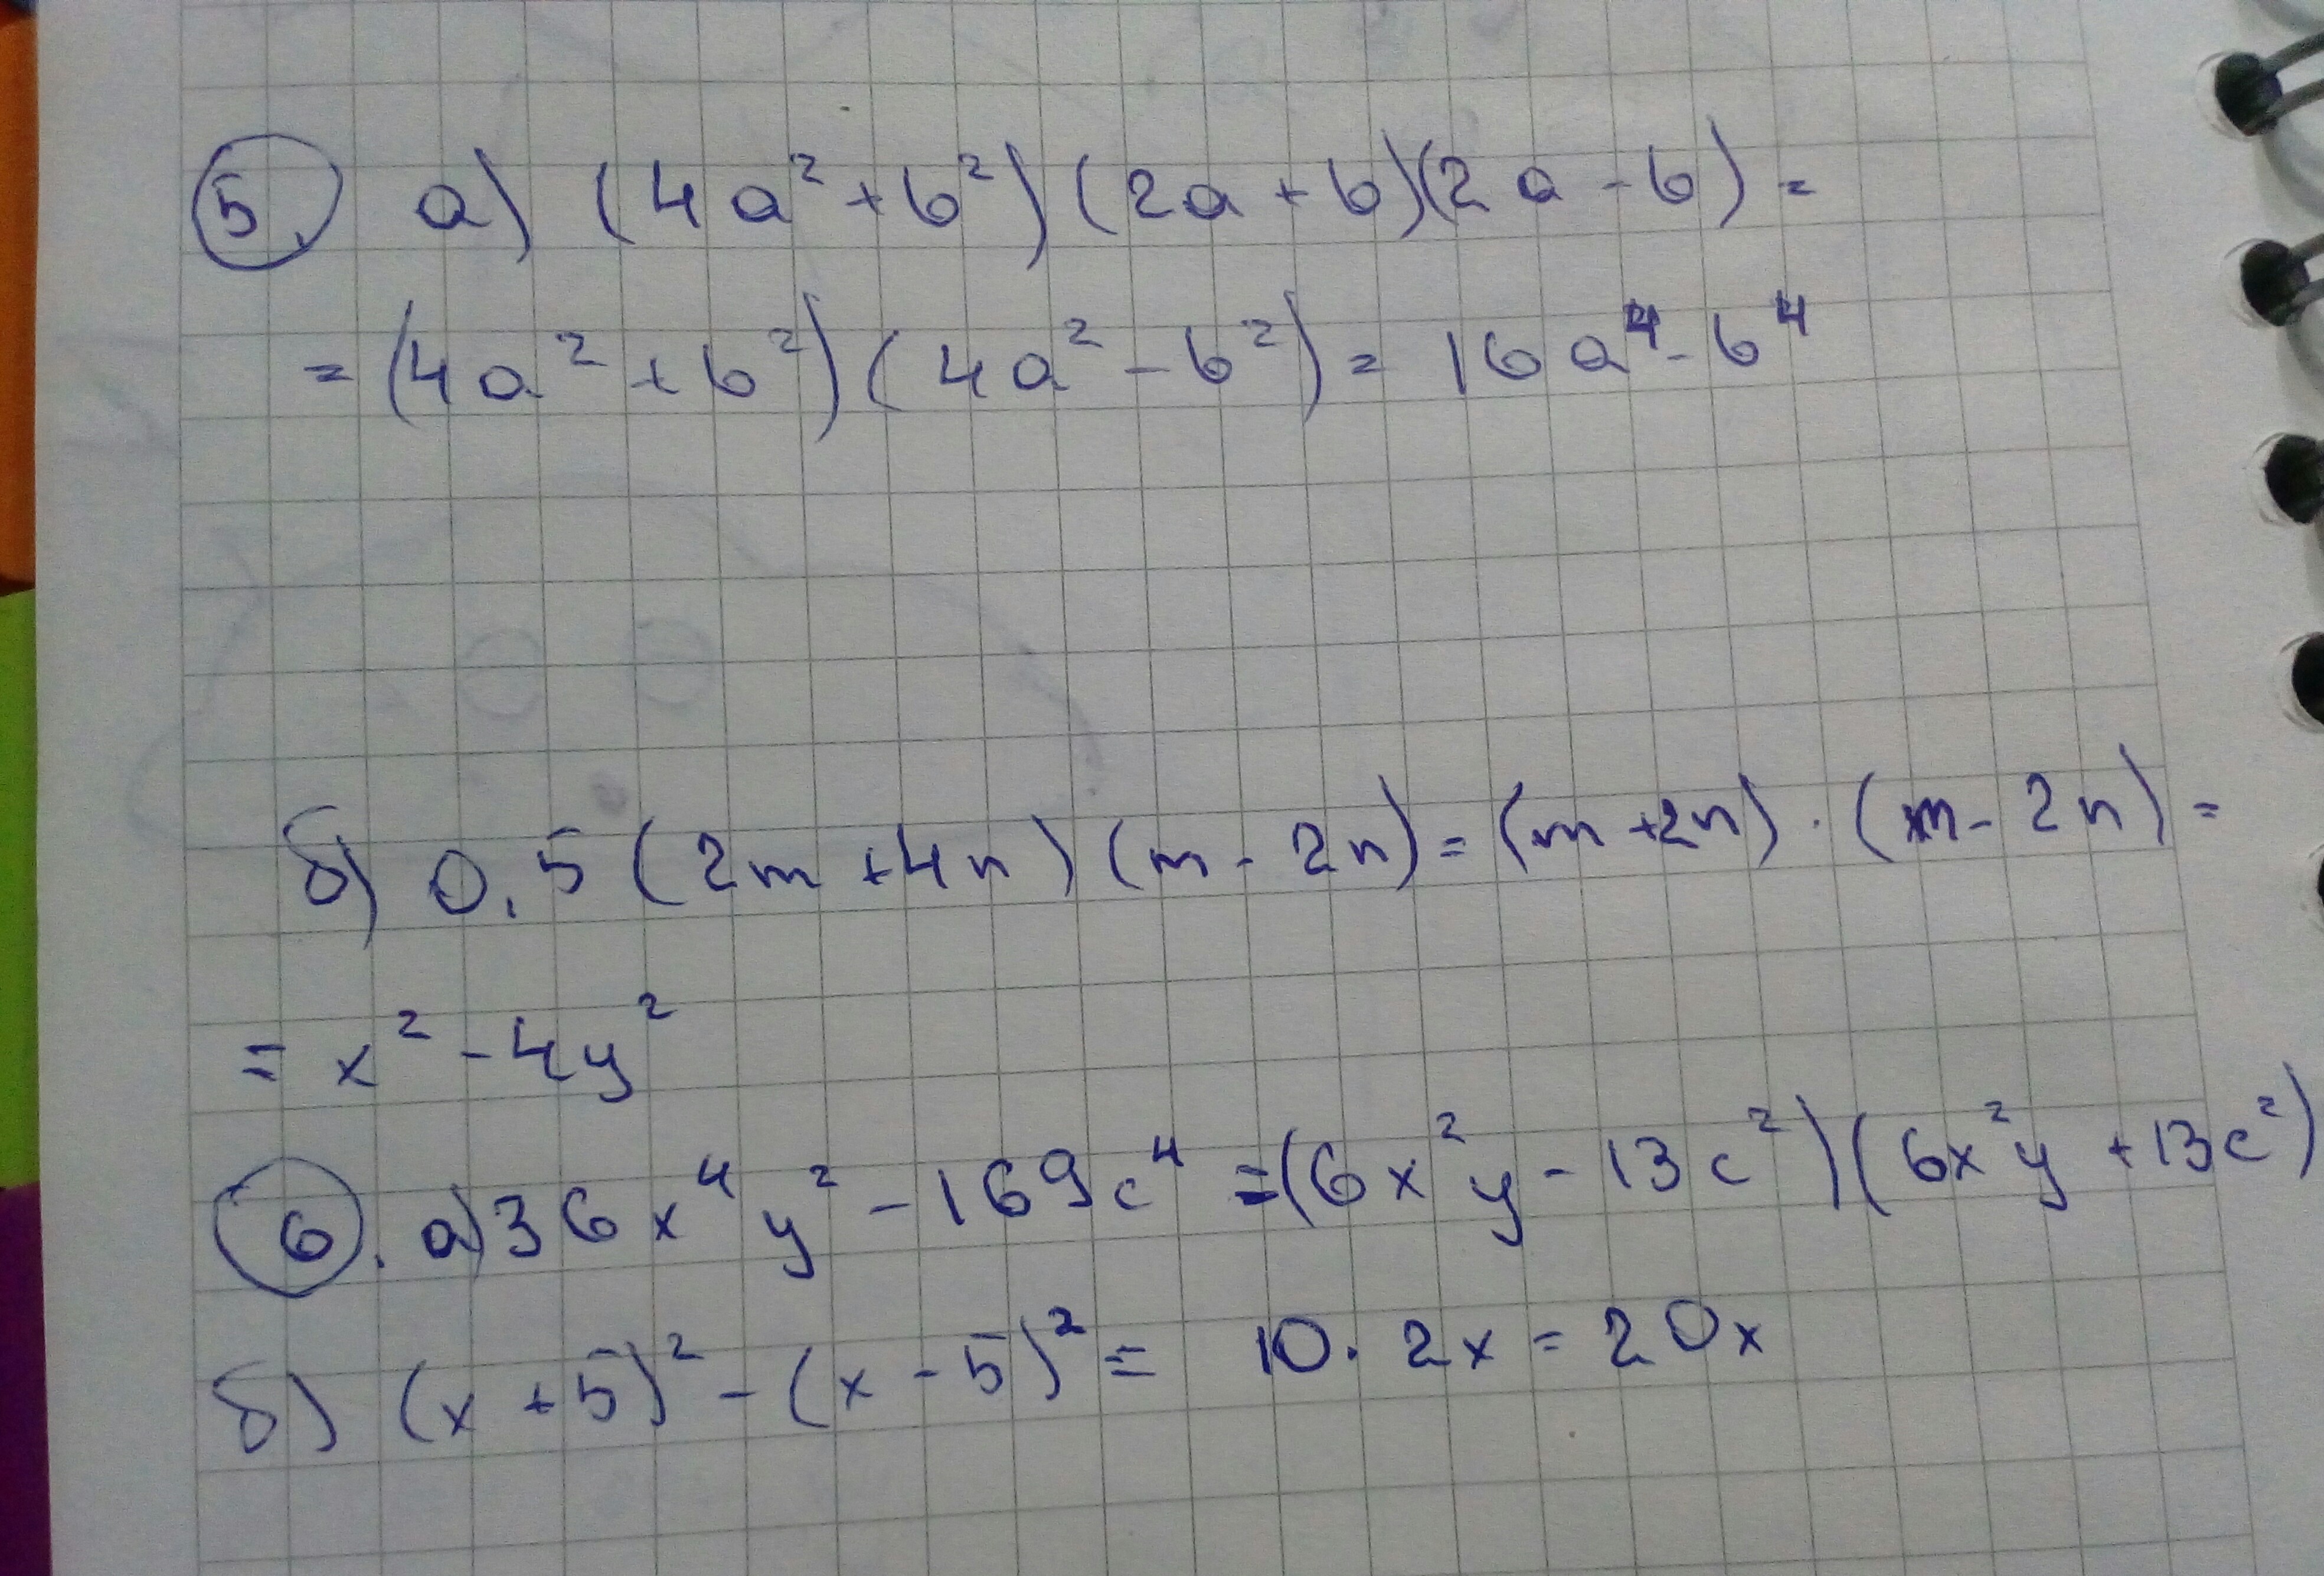 5. а) (4a² + b²)(2a + b)(2a - b) =
= (4a² + b²)(4a² - b²) = 16a⁴ - b⁴
б) 0,5(2m + 4n)(m - 2n) = (m + 2n) · (m - 2n) =
= x² - 4y²
6. а) 36x⁴y² - 169c⁴ = (6x²y - 13c²)(6x²y + 13c²)
б) (x + 5)² - (x - 5)² = 10 · 2x = 20x